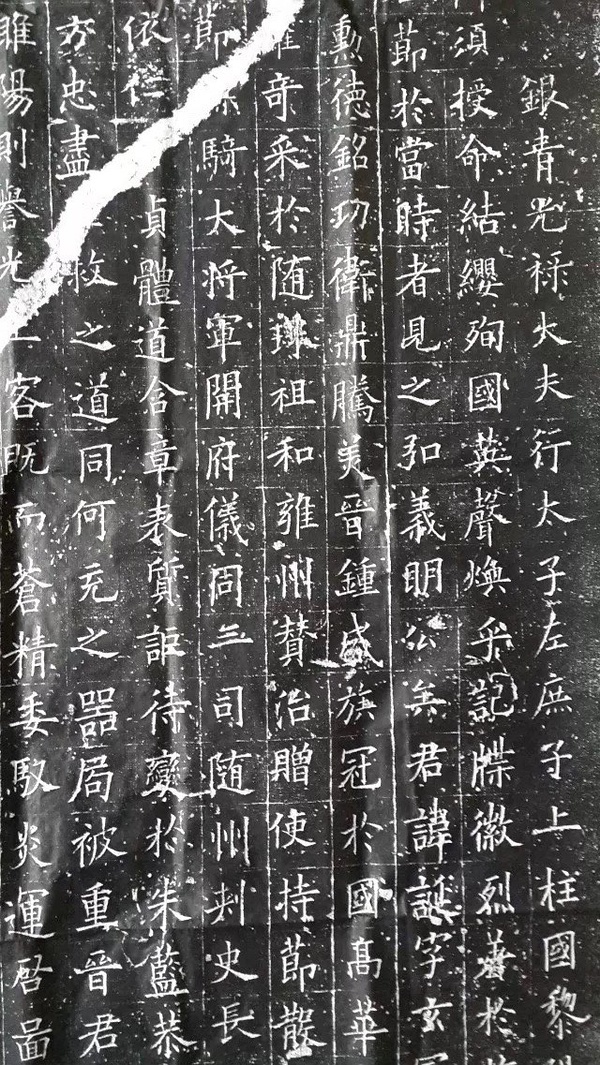 銀青光祿大夫行太子左庶子上柱國黎
須授命結纓殉國英聲煥乎記牒徽烈著於
節於當時者見之弘義明公矣君諱誕字玄
勲德銘功衛鼎騰美晉鍾盛族冠於國高華
竒采於随珠祖和雍州贊治贈使持節散
節騎大将軍開府儀同三司随州刺史長
依仁貞體道含章表質詎待變於朱藍恭
方忠盡牧之道同何充之器局被重晉君
睢陽則譽光客既而蒼精委馭炎運啓啚